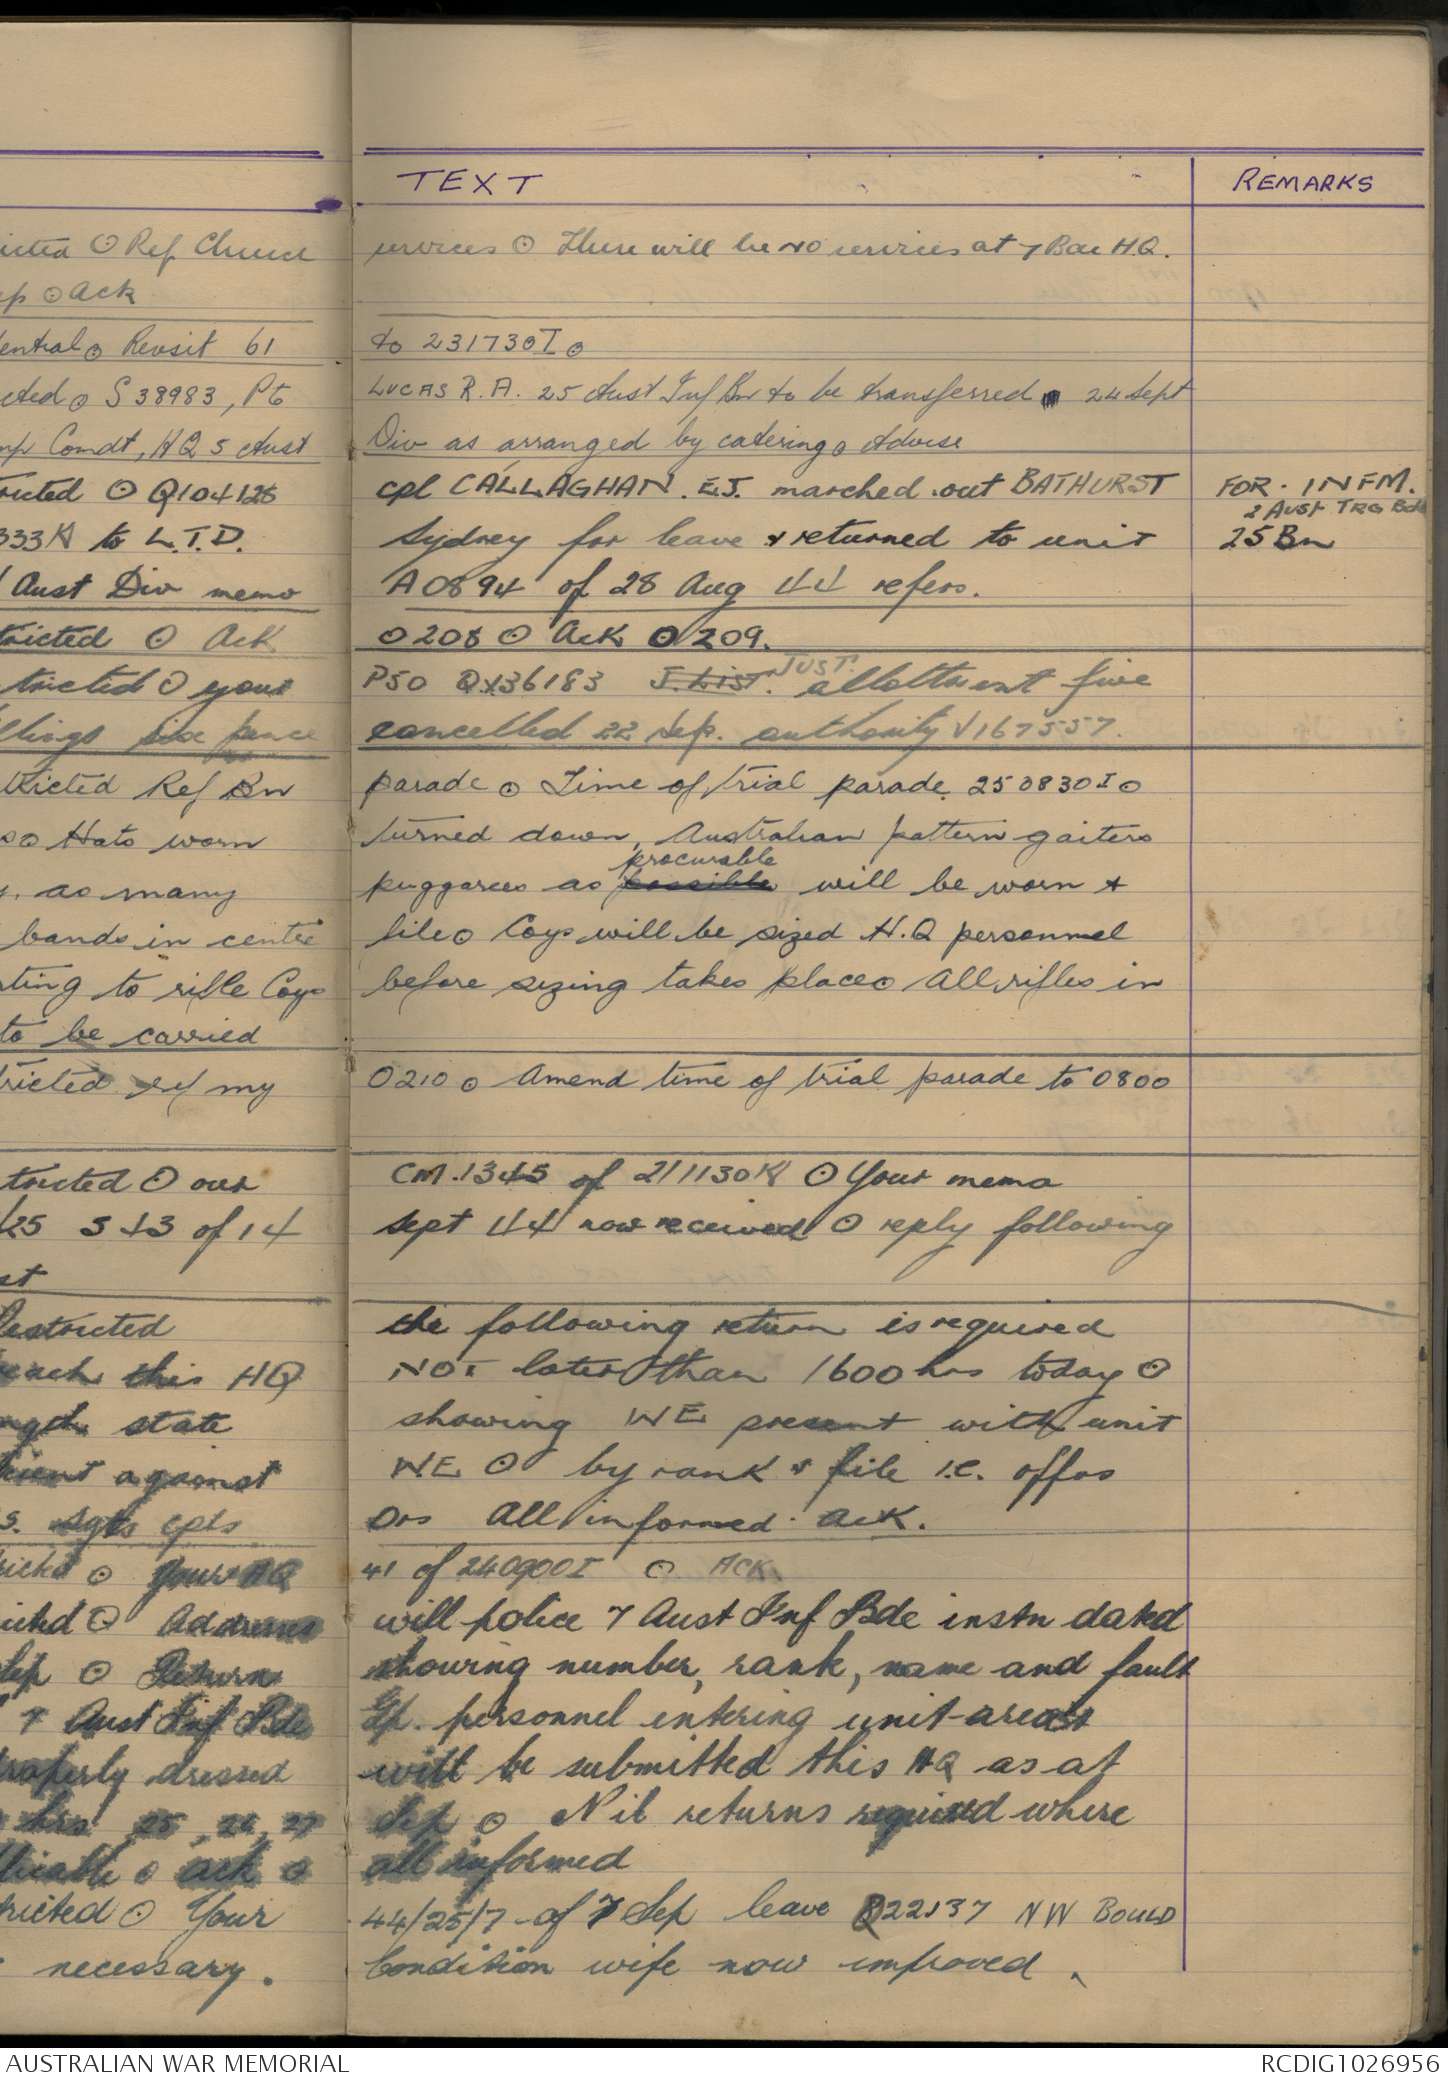 TEXT
REMARKS
icted ⊙ Ref Church
ep ⊙ Ack
dential ⊙ Revisit 61
cted ⊙ S 38983, Pte
mp Comdt, HQ 5 Aust
ricted ⊙ Q104126
333K to L.T.D.
Aust Div memo
tricted ⊙ Ack
tricted ⊙ your
llings six pence
tricted Ref Bn
so Hats worn
as many
bands in centre
rting to rifle Coys
to be carried
tricted ref my
tricted ⊙ our
/25 543 of 14
st
Restricted
reach this HQ
ngth state
cient against
s. sgts cpls
ricted ⊙ Your HQ
icted ⊙ Addresses
Sep ⊙ Return
7 Aust Inf Bde
roperly dressed
hrs 25, 26, 27
licable ⊙ ack ⊙
tricted ⊙ Your
necessary.
services ⊙ There will be NO services at 7 Bde H.Q.
to 231730I ⊙
LUCAS R.A. 25 Aust Inf Bn to be transferred 24 Sept
Div as arranged by catering ⊙ Advise
cpl CALLAGHAN. E.J. marched out BATHURST
Sydney for leave & returned to unit
A0894 of 28 Aug 44 refers.
O208 ⊙ Ack O209.
P50 QX36183 J. List. JUST. allottment five
cancelled 22 Sep. authority V167557.
parade ⊙ Time of trial parade 250830I ⊙
turned down, Australian pattern gaiters
procurable
puggarees as possible will be worn &
file ⊙ Coys will be sized H.Q personnel
before sizing takes place ⊙ All rifles in
O210 ⊙ Amend time of trial parade to 0800
CM.1345 of 211130K ⊙ Your memo
sept 44 now received ⊙ reply following
the following return is required
NOT later than 1600 hrs today ⊙
showing WE present with unit
WE ⊙ by rank & file i.e. offrs
Ors All informed. Ack.
41 of 240900I ⊙ ACK.
will police 7 Aust Inf Bde instn dated
showing number, rank, name and fault
Gp. personnel entering unit areas
will be submitted this HQ as at
Sep ⊙ Nil returns required where
all informed
44/25/7 of 7 Sep leave Q22137 NW BOULD
Condition wife now improved.
FOR. INFM.
2 Aust TRG Bde
25 Bn
AUSTRALIAN WAR MEMORIAL
RCDIG1026956